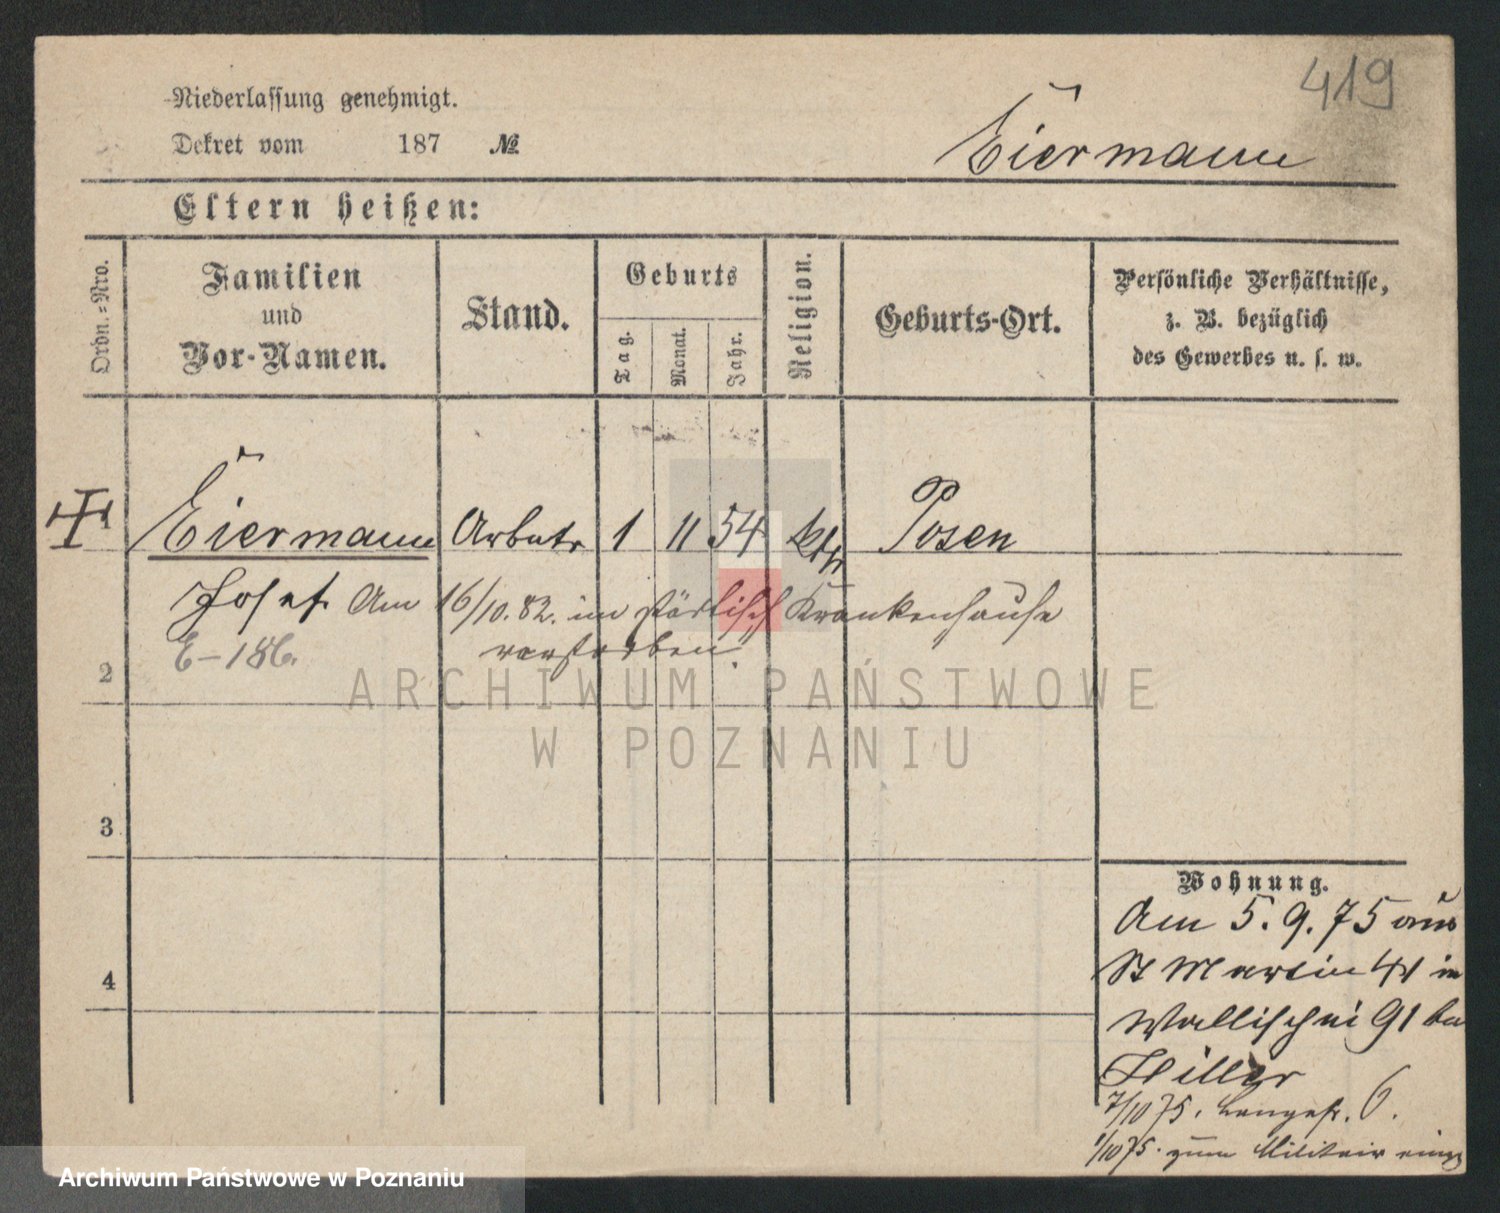 419
Niederlassung genehmigt.
Dekret vom 187 №
Eiermann
Eltern heißen:
Ordn.-Nro.
Familien und Vor-Namen.
Stand.
Geburts
Tag.
Monat.
Jahr.
Religion.
Geburts-Ort.
Persönliche Verhältnisse,
z. B. bezüglich
des Gewerbes u. s. w.
Eiermann Arbeiter 1 11 54 kth Posen
Josef. Am 16/10. 82. im städtisch Krankenhause
E-186. verstorben.
2
ARCHIWUM PAŃSTWOWE
W POZNANIU
3
4
Wohnung.
Am 5. 9. 75 aus
St Martin 41 in
Wallischei 91 bei
Hiller
7/10 75. Langestr. 6.
1/10 75. zum Militair eing
Archiwum Państwowe w Poznaniu